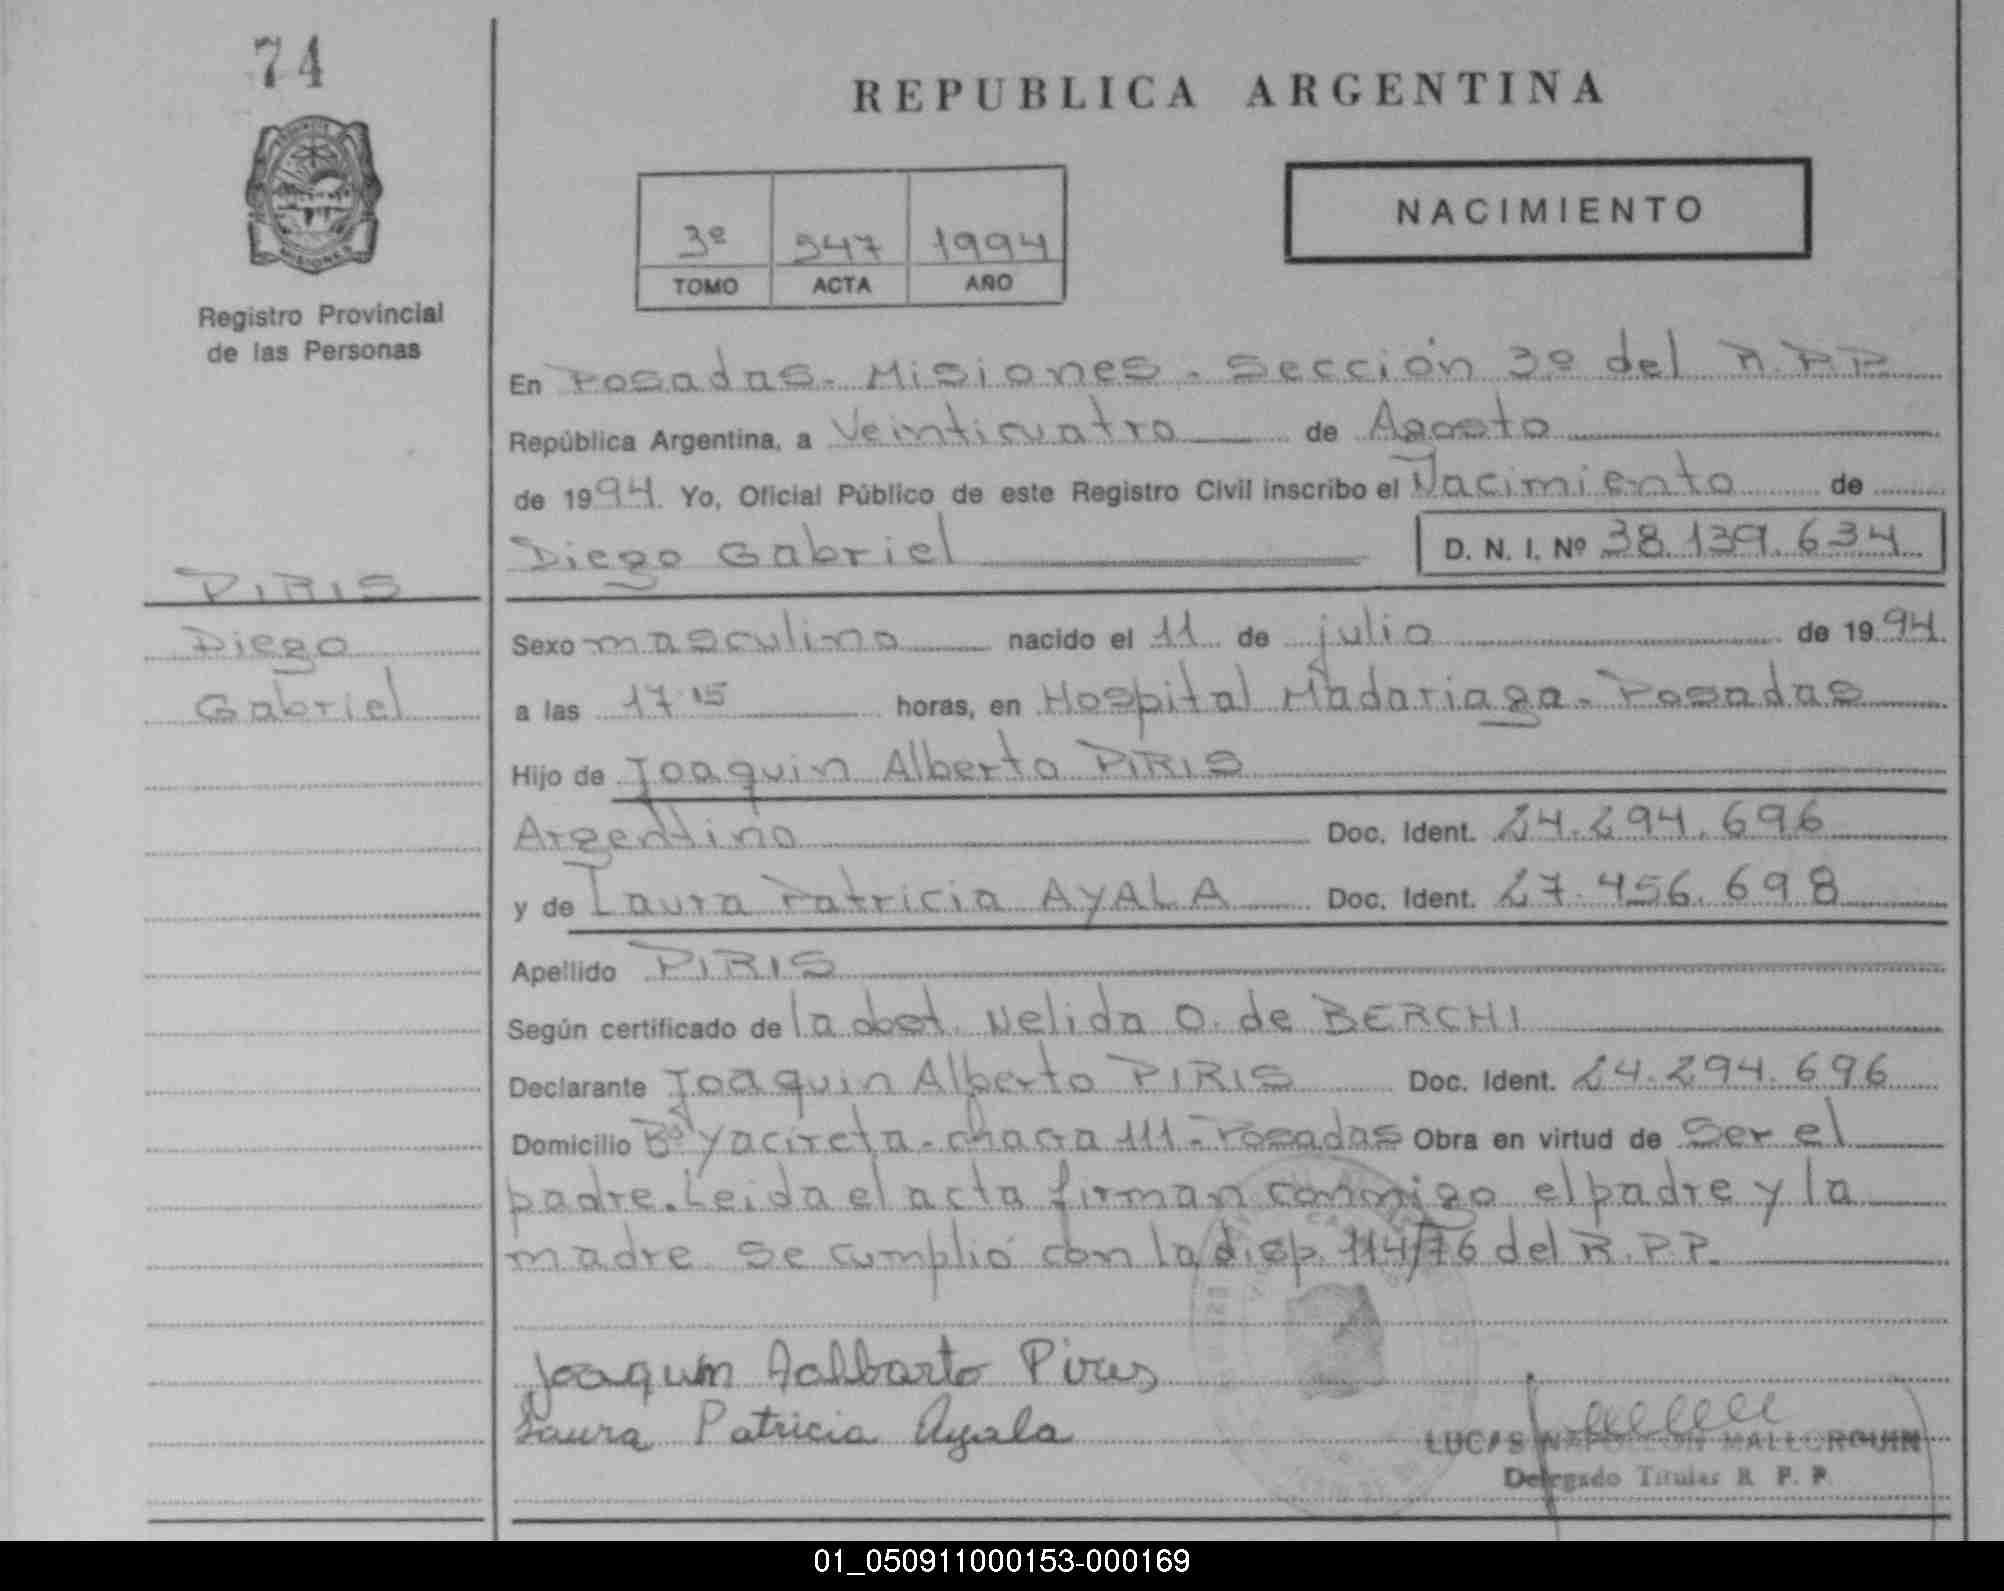 74
REPUBLICA ARGENTINA
MISIONES
Registro Provincial
de las Personas
3º 947 1994
TOMO ACTA AÑO
NACIMIENTO
En Posadas - Misiones - Sección 3º del R.P.P.
República Argentina, a Veinticuatro de Agosto
de 1994. Yo, Oficial Público de este Registro Civil inscribo el Nacimiento de
Diego Gabriel D. N. I. Nº 38.139.634
PIRIS
Diego
Gabriel
Sexo masculino nacido el 11 de julio de 1994.
a las 17 15 horas, en Hospital Madariaga - Posadas
Hijo de Joaquin Alberto PIRIS
Argentino Doc. Ident. 24.294.696
y de Laura Patricia AYALA Doc. Ident. 27.456.698
Apellido PIRIS
Según certificado de la obst. Nelida O. de BERCHI
Declarante Joaquin Alberto PIRIS Doc. Ident. 24.294.696
Domicilio Bº Yacireta - chacra 111 - Posadas Obra en virtud de Ser el
padre. Leida el acta firman conmigo el padre y la
madre. Se cumplió con la disp. 114/76 del R.P.P.
Joaquin Aalbarto Pires
Laura Patricia Ayala
LUCAS NAPOLEON MALLORQUIN
Delegado Titular R. P. P.
01_050911000153-000169